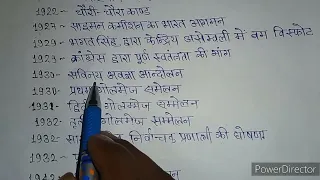 1922- चौरी-चौरा काण्ड
1927- साइमन कमीशन का भारत आगमन
1929- भगत सिंह द्वारा केन्द्रिय असेम्बली में बम विस्फोट
1929- कांग्रेस द्वारा पूर्ण स्वतंत्रता की मांग
1930- सविनय अवज्ञा आन्दोलन
1930- प्रथम गोलमेज सम्मेलन
1931- द्वितीय गोलमेज सम्मेलन
1932- गोलमेज सम्मेलन
1932- निर्वाचक प्रणाली की घोषणा
1932-
PowerDirector